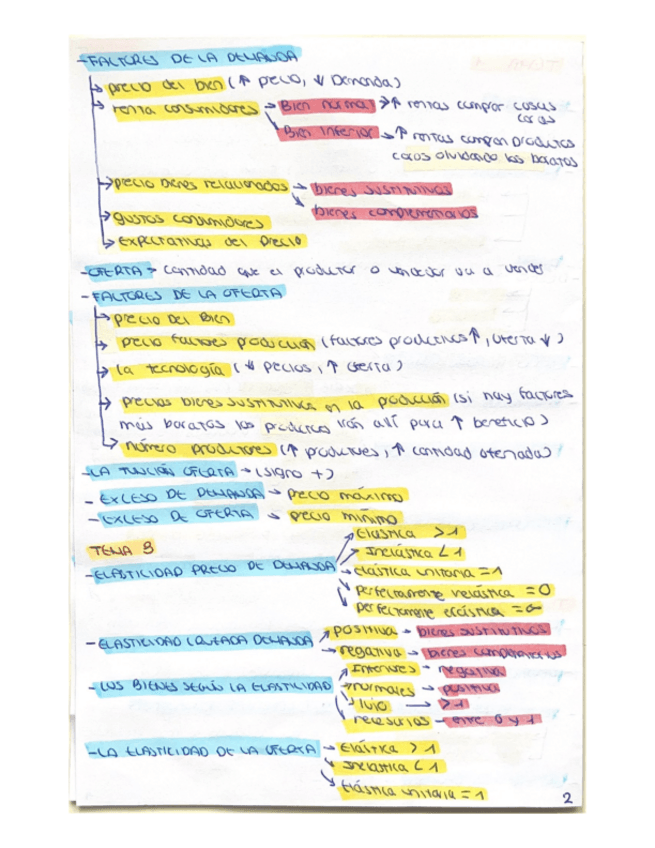 - FACTORES DE LA DEMANDA
→ precio del bien (↑ precio, ↓ Demanda)
→ renta consumidores → Bien normal → ↑ rentas compran cosas caras
→ Bien Inferior → ↑ rentas compran productos
caros olvidando los baratos
→ precio bienes relacionados → bienes sustitutivos
→ bienes complementarios
→ gustos consumidores
→ expectativas del precio
- OFERTA → cantidad que el productor o vendedor va a vender
- FACTORES DE LA OFERTA
→ precio del Bien
→ precio factores producción (factores productivos ↑, oferta ↓)
→ la tecnología (↓ precios, ↑ oferta)
→ precios bienes sustitutivos en la producción (si hay factores
más baratos los productos irán allí para ↑ beneficio)
→ número productores (↑ productores, ↑ cantidad ofertada)
- LA FUNCIÓN OFERTA → (signo +)
- EXCESO DE DEMANDA → precio máximo
- EXCESO DE OFERTA → precio mínimo
TEMA 3
→ Elástica > 1
→ Inelástica < 1
- ELASTICIDAD PRECIO DE DEMANDA → elástica unitaria = 1
→ perfectamente inelástica = 0
→ perfectamente elástica = ∞
- ELASTICIDAD CRUZADA DEMANDA → positiva → bienes sustitutivos
→ negativa → bienes complementarios
→ Inferiores → negativa
- LOS BIENES SEGÚN LA ELASTICIDAD → normales → positiva
→ lujo → > 1
→ necesarios → entre 0 y 1
- LA ELASTICIDAD DE LA OFERTA → Elástica > 1
→ Inelástica < 1
→ Elástica unitaria = 1
2